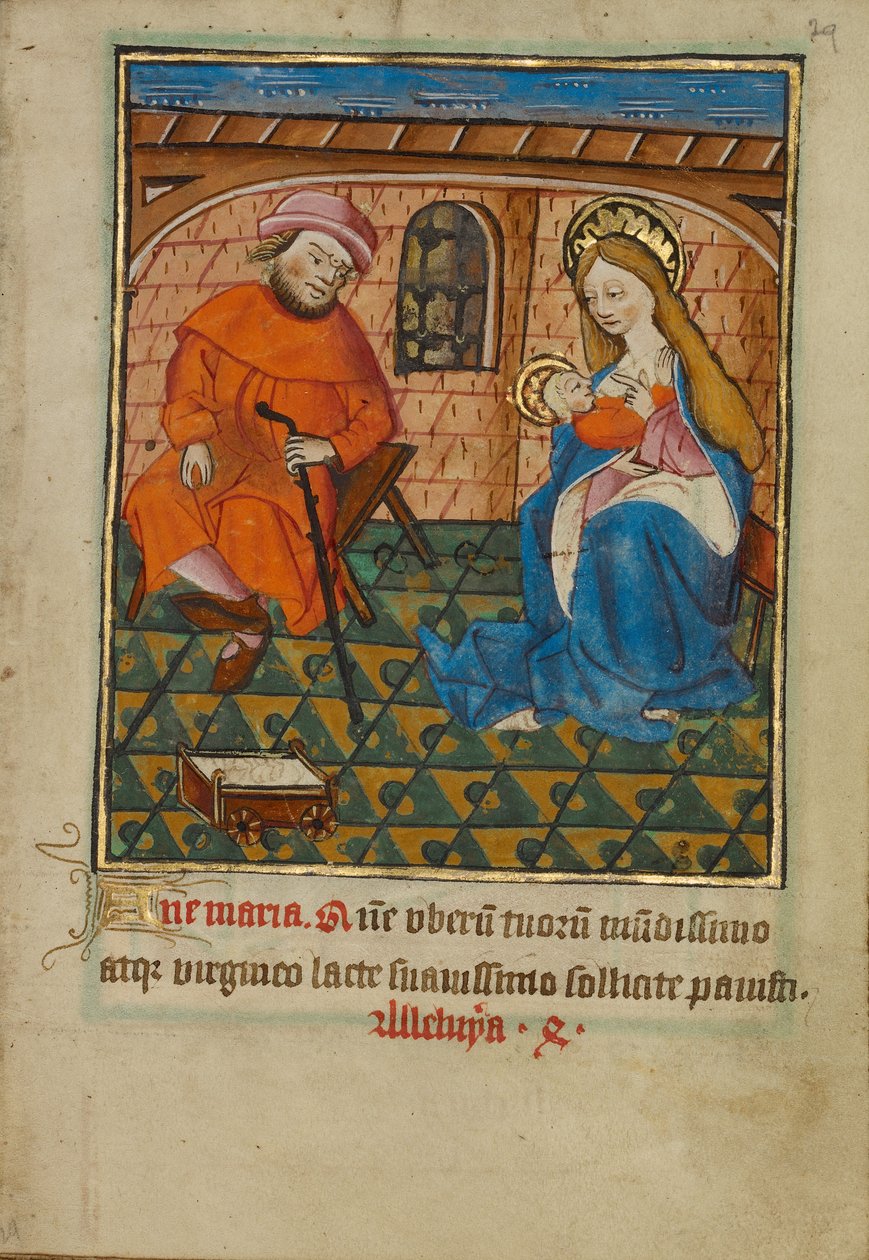 29
Aue maria. Quē vberū tuorū mūdissimo
atqꝫ virgineo lacte suauissimo sollicite pauisti.
Alleluya.